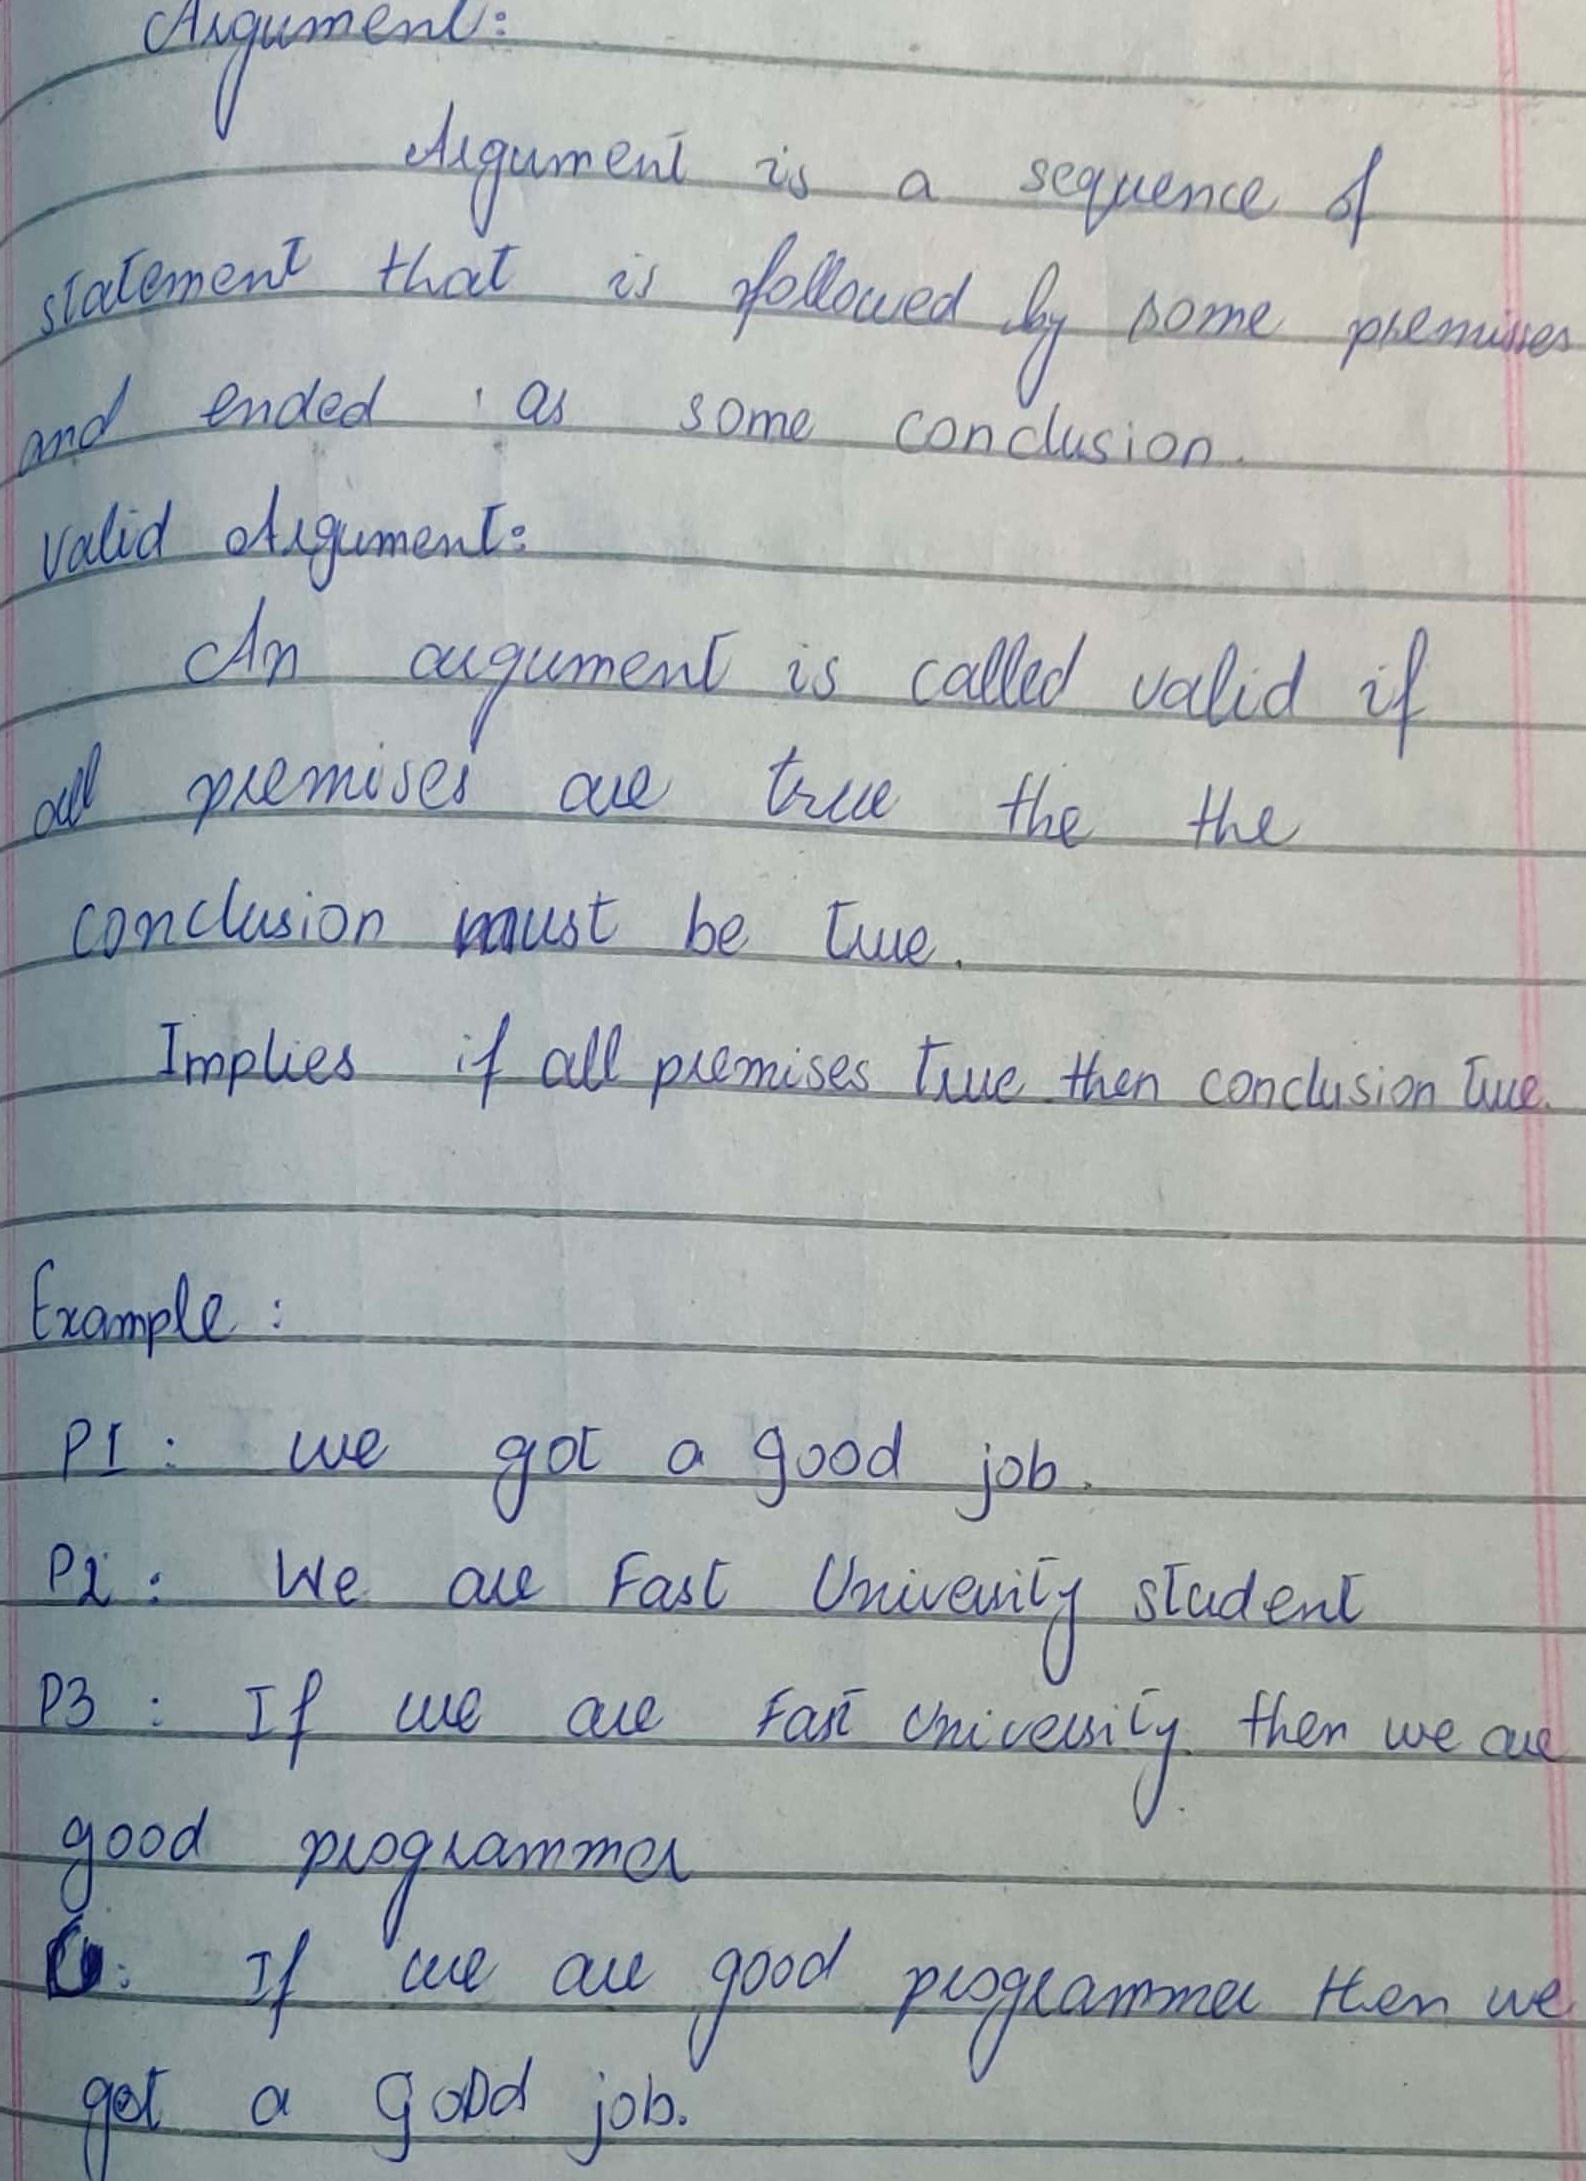 Argument:
Argument is a sequence of
statement that is followed by some premisses
and ended as some conclusion.
Valid Argument:
An argument is called valid if
all premises are true the the
conclusion must be true.
Implies if all premises true then conclusion true.
Example :
P1 : we got a good job.
P2 : We are Fast University student
P3 : If we are Fast University then we are
good programmer
C : If we are good programmer then we
got a good job.